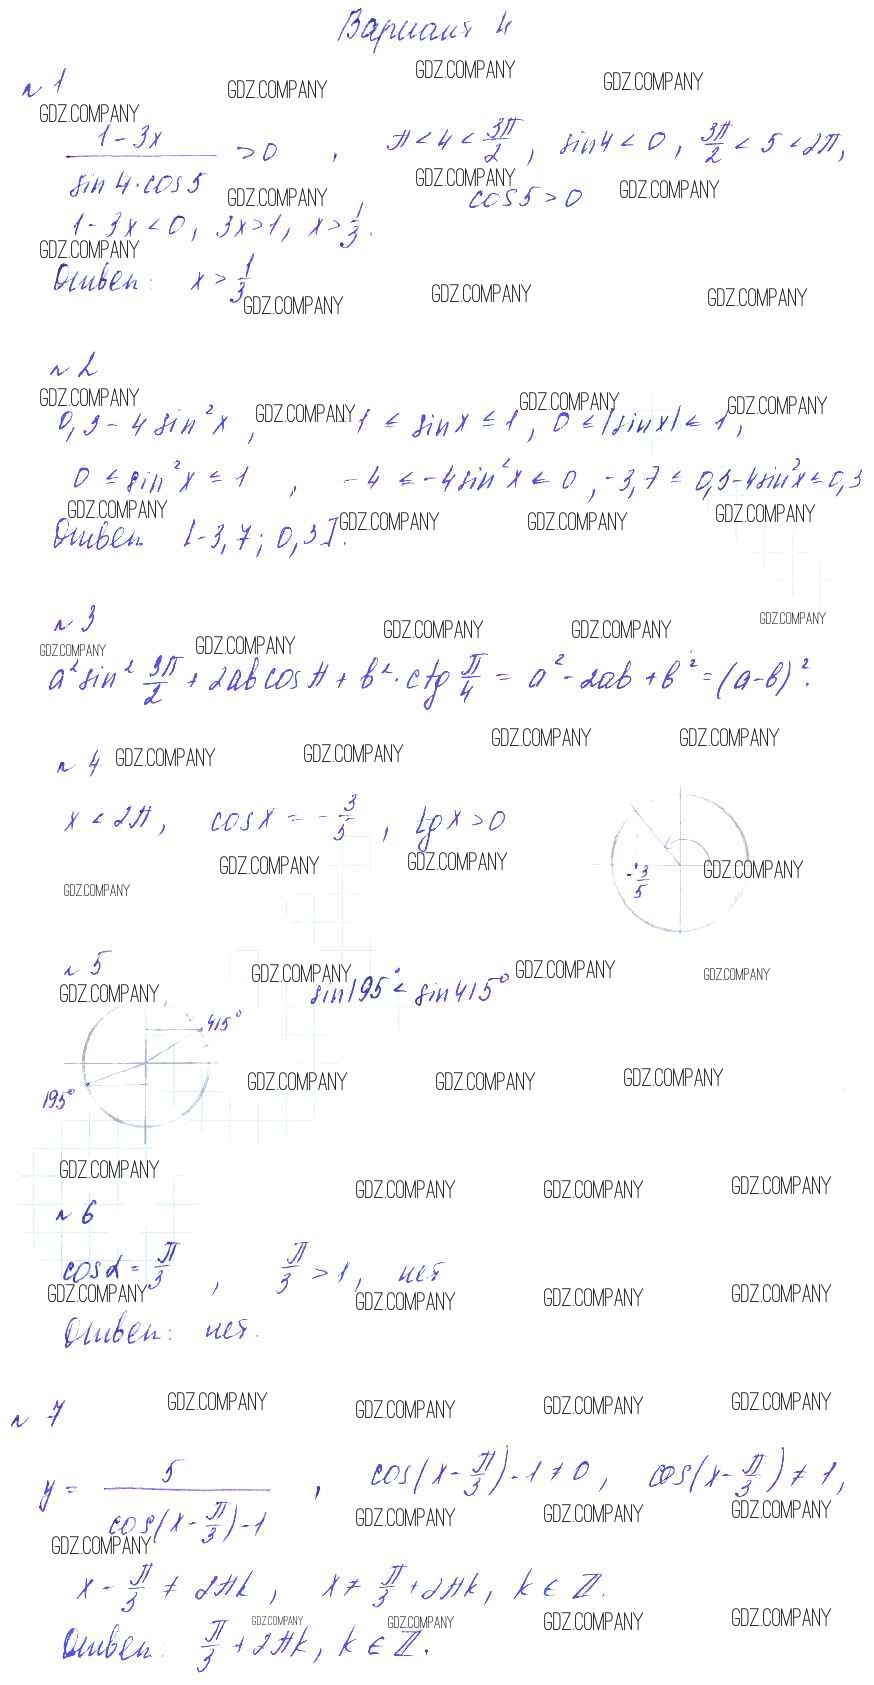 Вариант 4
GDZ.COMPANY GDZ.COMPANY GDZ.COMPANY
№1
GDZ.COMPANY
(1-3x)/(sin4·cos5) >0, π<4<3π/2, sin4<0, 3π/2<5<2π,
GDZ.COMPANY GDZ.COMPANY GDZ.COMPANY
cos5>0
1-3x<0, 3x>1, x>1/3.
GDZ.COMPANY
Ответ: x>1/3
GDZ.COMPANY GDZ.COMPANY GDZ.COMPANY
№2
GDZ.COMPANY GDZ.COMPANY GDZ.COMPANY GDZ.COMPANY
0,3-4sin²x, -1≤sinx≤1, 0≤|sinx|≤1,
0≤sin²x≤1, -4≤-4sin²x≤0, -3,7≤0,3-4sin²x≤0,3
GDZ.COMPANY GDZ.COMPANY GDZ.COMPANY GDZ.COMPANY
Ответ [-3,7; 0,3].
№3
GDZ.COMPANY GDZ.COMPANY GDZ.COMPANY GDZ.COMPANY GDZ.COMPANY
a²sin² 3π/2 + 2ab cosπ + b²·ctg π/4 = a²-2ab+b²=(a-b)².
GDZ.COMPANY GDZ.COMPANY GDZ.COMPANY GDZ.COMPANY
№4
x<2π, cosx=-3/5, tgx>0
-3/5
GDZ.COMPANY GDZ.COMPANY GDZ.COMPANY GDZ.COMPANY
№5
GDZ.COMPANY GDZ.COMPANY GDZ.COMPANY GDZ.COMPANY
sin195°<sin415°
415°
195°
GDZ.COMPANY GDZ.COMPANY GDZ.COMPANY
GDZ.COMPANY GDZ.COMPANY GDZ.COMPANY GDZ.COMPANY
№6
cosα=π/3, π/3>1, нет
GDZ.COMPANY GDZ.COMPANY GDZ.COMPANY GDZ.COMPANY
Ответ: нет.
GDZ.COMPANY GDZ.COMPANY GDZ.COMPANY GDZ.COMPANY
№7
y=5/(cos(x-π/3)-1), cos(x-π/3)-1≠0, cos(x-π/3)≠1,
GDZ.COMPANY GDZ.COMPANY GDZ.COMPANY GDZ.COMPANY
x-π/3≠2πk, x≠π/3+2πk, k∈Z.
GDZ.COMPANY GDZ.COMPANY GDZ.COMPANY GDZ.COMPANY
Ответ: π/3+2πk, k∈Z.